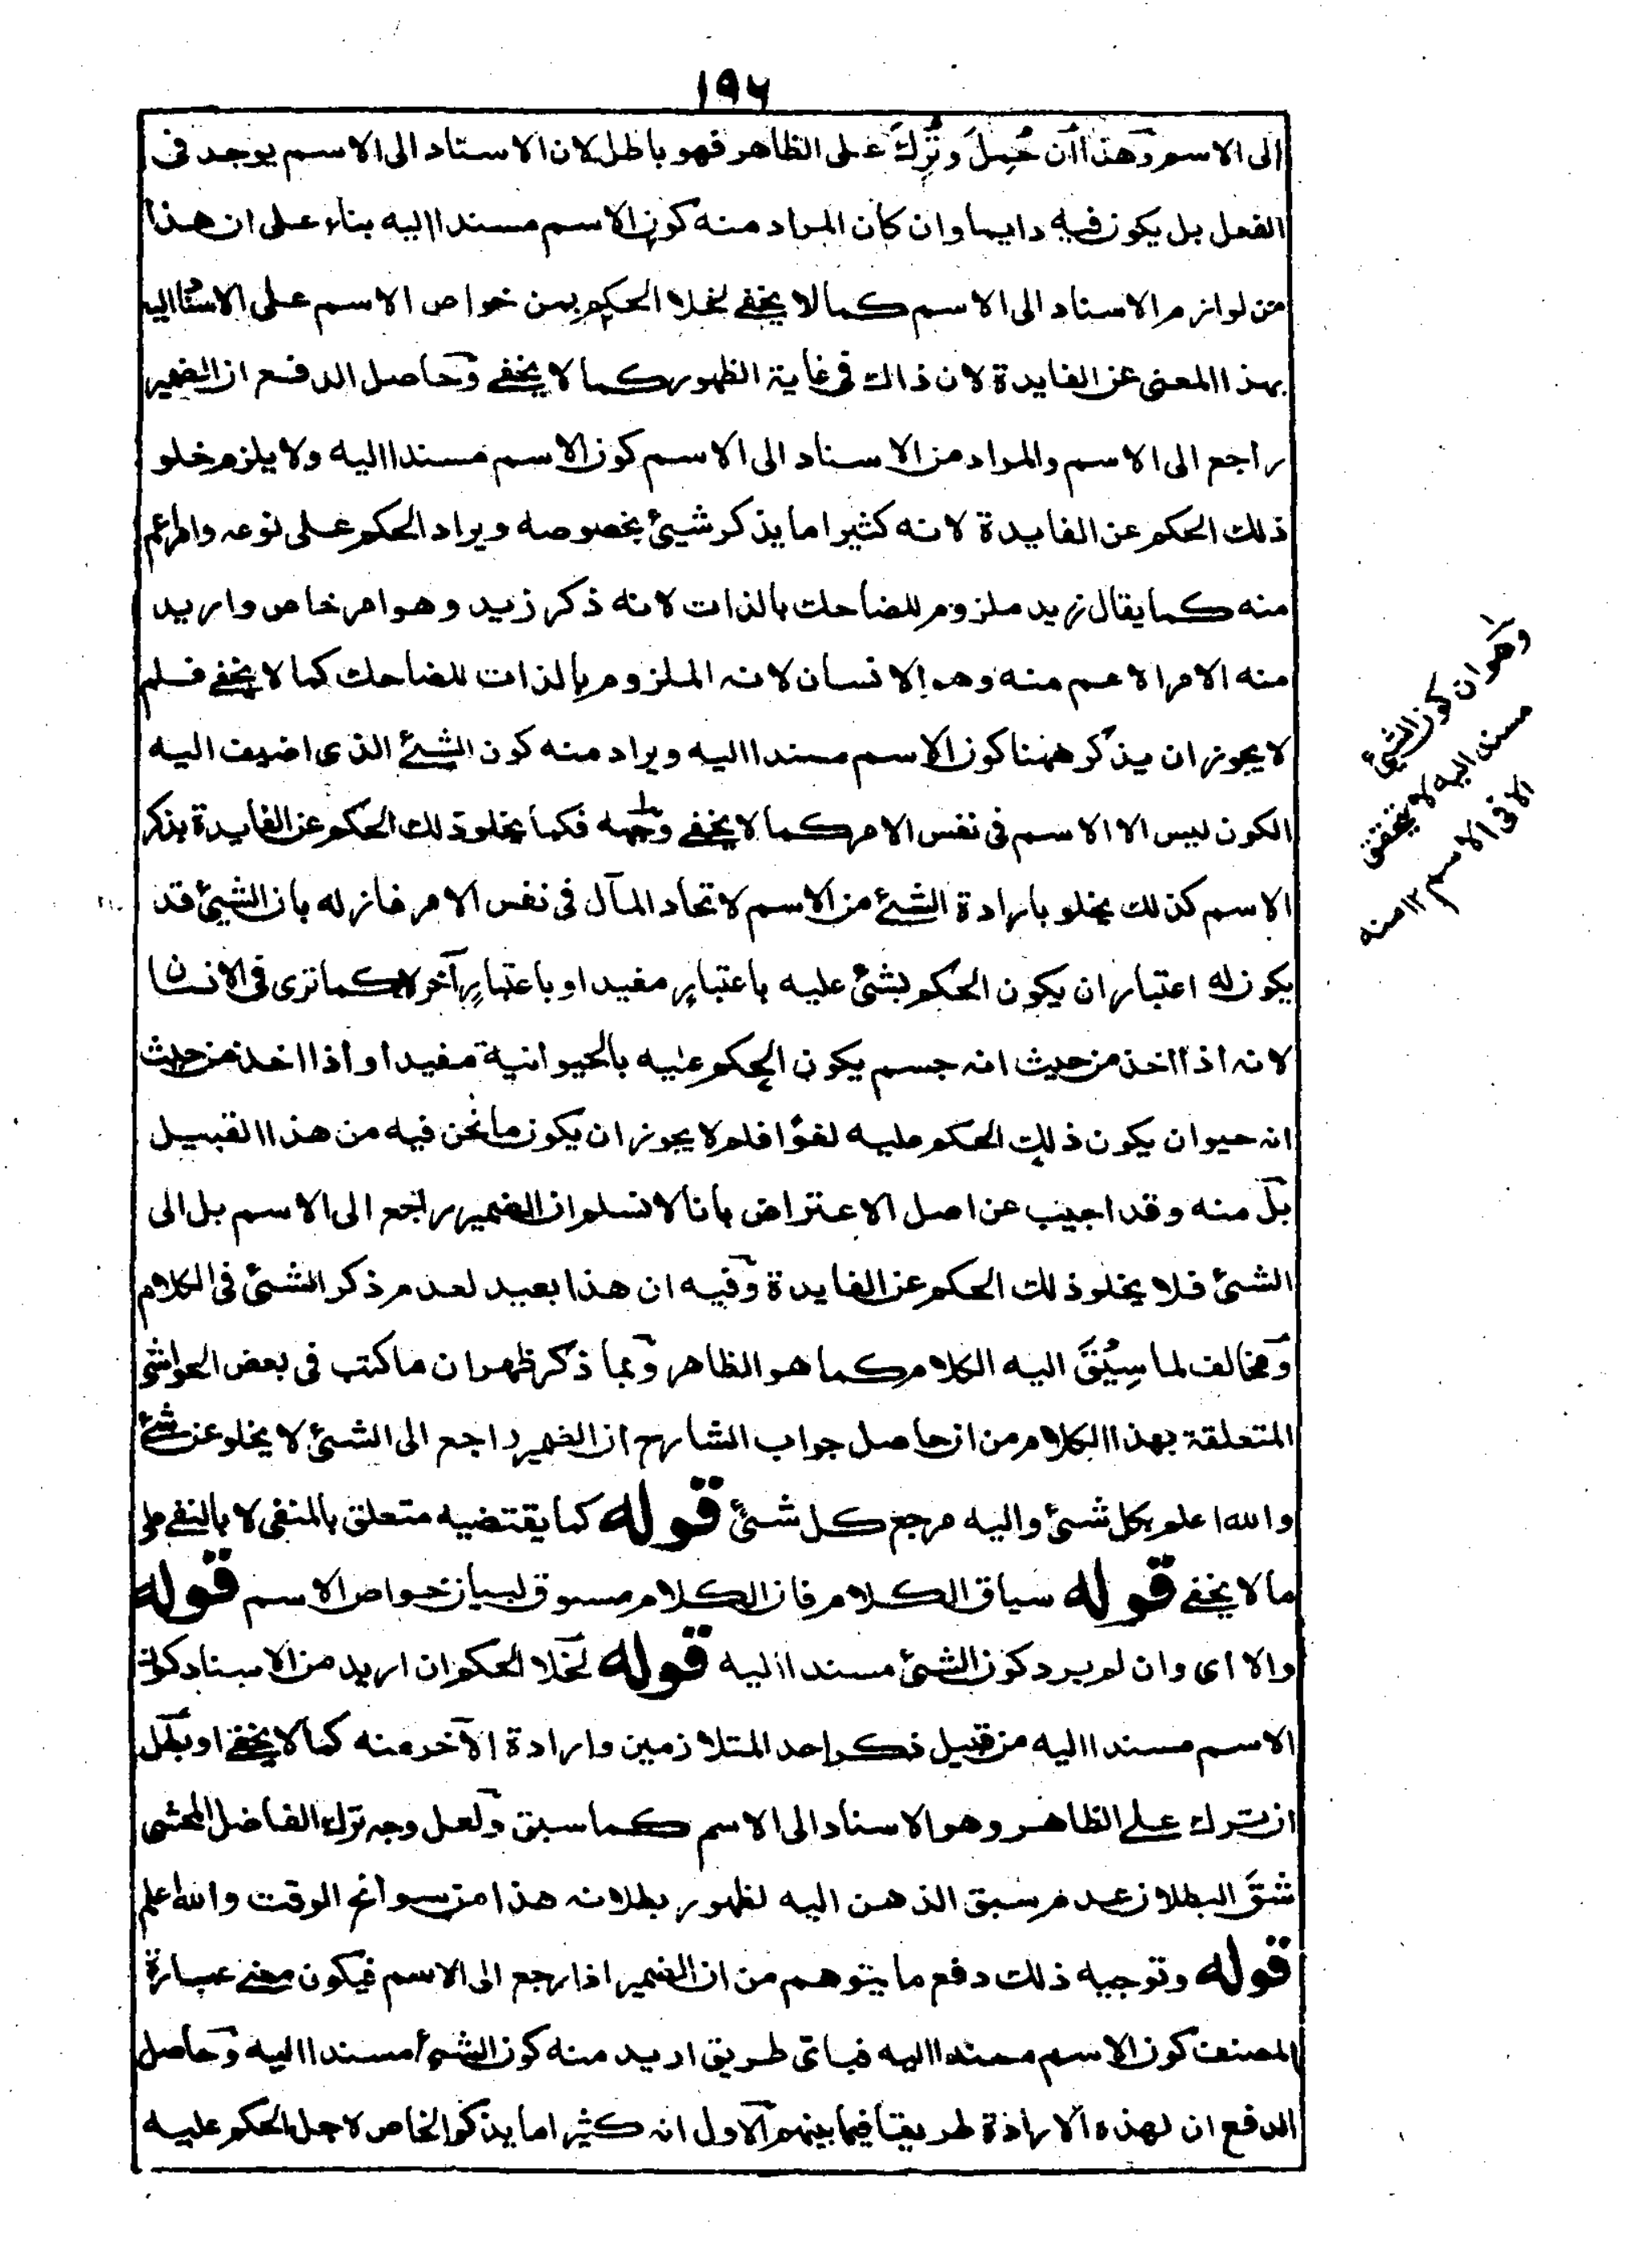 ١٩٦
الى الاسم وهذا ان حُمِلَ وتُرِكَ على الظاهر فهو باطل لان الاسناد الى الاسم يوجد فى
الفعل بل يكون فيه دايما وان كان المراد منه كون الاسم مسندا اليه بناء على ان هذا
من لوازم الاسناد الى الاسم كما لا يخفى لخلا الحكم بمن خواص الاسم على الاسناد اليه
بهذا المعنى عن الفايدة لان ذاك فى غاية الظهور كما لا يخفى وحاصل الدفع ان الضمير
راجع الى الاسم والمراد من الاسناد الى الاسم كون الاسم مسندا اليه ولا يلزم خلو
ذلك الحكم عن الفايدة لانه كثيرا ما يذكر شيئ بخصوصه ويراد الحكم على نوعه وامر اعم
منه كما يقال زيد ملزوم للضاحك بالذات لانه ذكر زيد وهو امر خاص واريد
منه الامر الاعم منه وهو الانسان لانه الملزوم بالذات للضاحك كما لا يخفى فلم
لا يجوز ان يذكر ههنا كون الاسم مسندا اليه ويراد منه كون الشئ الذى اضيف اليه
الكون ليس الا الاسم فى نفس الامر كما لا يخفى وجهه فكما يخلو ذلك الحكم عن الفايدة بذكر
الاسم كذلك يخلو بارادة الشئ من الاسم لاتحاد المآل فى نفس الامر فازله بان الشيئ قد
يكون له اعتبار ان يكون الحكم بشئ عليه باعتبارٍ مفيدا و باعتبارٍ آخر لا كما ترى فى الانسان
لانه اذا اخذ من حيث انه جسم يكون الحكم عليه بالحيوانية مفيدا و اذا اخذ من حيث
انه حيوان يكون ذلك الحكم عليه لغوًا فلم لا يجوز ان يكون ما نحن فيه من هذا القبيل
بل منه وقد اجيب عن اصل الاعتراض بانا لا نسلم ان الضمير راجع الى الاسم بل الى
الشئ فلا يخلو ذلك الحكم عن الفايدة وفيه ان هذا بعيد لعدم ذكر الشئ فى الكلام
ومخالف لما سِيْقَ اليه الكلام كما هو الظاهر وبما ذكر ظهر ان ما كتب فى بعض الحواشى
المتعلقة بهذا الكلام من ان حاصل جواب الشارح ان الضمير راجع الى الشئ لا يخلو عن شئ
والله اعلم بكل شئ واليه مرجع كل شئ قوله كما يقتضيه متعلق بالمنفى لا بالنفى على
ما لا يخفى قوله سياق الكلام فان الكلام مسوق لبيان خواص الاسم قوله
والا اى وان لم يرد كون الشئ مسندا اليه قوله لخلا الحكم ان اريد من الاسناد كون
الاسم مسندا اليه من قبيل ذكر احد المتلازمين وارادة الآخر منه كما لا يخفى او بطل
ان ترك على الظاهر وهو الاسناد الى الاسم كما سبق ولعل وجه ترك الفاضل المحشى
شقَّ البطلان عدم سبق الذهن اليه لظهور بطلانه هذا من سوانح الوقت والله اعلم
قوله وتوجيه ذلك دفع ما يتوهم من ان الضمير اذا رجع الى الاسم فيكون معنى عبارة
المصنف كون الاسم مسندا اليه فباى طريق اريد منه كون الشئ مسندا اليه وحاصل
الدفع ان لهذه الارادة طريقا فيما بينهم الاول انه كثيرا ما يذكر الخاص لاجل الحكم عليه
وهو ان كون الشيئ
مسندا اليه لا يتحقق
الا فى الاسم ١٢ منه